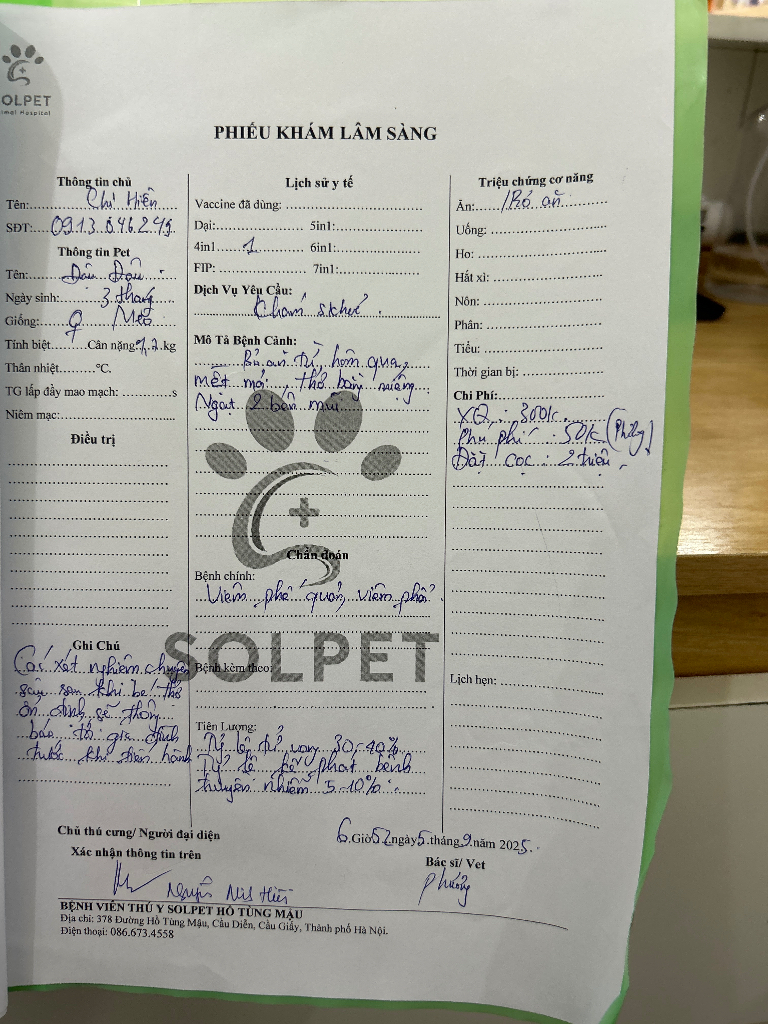 SOLPET
Animal Hospital
PHIẾU KHÁM LÂM SÀNG
Thông tin chủ
Tên: Chị Hiền
SĐT: 0913.646.249
Thông tin Pet
Tên: Đậu Đậu
Ngày sinh: 3 tháng
Giống: ♀ Mèo
Tính biệt........Cân nặng:1,2.kg
Thân nhiệt........°C.
TG lấp đầy mao mạch: ..............s
Niêm mạc:
Điều trị
Ghi Chú
Các xét nghiệm chuyên
sâu sau khi bé thở
ổn định sẽ thông
báo tới gia đình
trước khi tiến hành
Lịch sử y tế
Vaccine đã dùng:
Dại: 5in1:
4in1 1 6in1:
FIP: 7in1:
Dịch Vụ Yêu Cầu:
Khám
Mô Tả Bệnh Cảnh:
Bỏ ăn từ hôm qua,
mệt mỏi, thở bằng miệng
Ngạt 2 bên mũi
Chẩn đoán
Bệnh chính:
Viêm phế quản, viêm phổi
SOLPET
Bệnh kèm theo:
Tiên Lượng:
Tỷ lệ tử vong 30-40%
Tỷ lệ kế phát bệnh
truyền nhiễm 5-10%
Triệu chứng cơ năng
Ăn: Bỏ ăn
Uống:
Ho:
Hắt xì:
Nôn:
Phân:
Tiểu:
Thời gian bị:
Chi Phí:
XQ : 300k
Phụ phí : 50k (Phòng)
Đặt cọc : 2 triệu
Lịch hẹn:
6 Giờ 52 ngày 5 tháng 9 năm 2025
Chủ thú cưng/ Người đại diện
Xác nhận thông tin trên
Bác sĩ/ Vet
Phương
BỆNH VIỆN THÚ Y SOLPET HỒ TÙNG MẬU
Địa chỉ: 378 Đường Hồ Tùng Mậu, Cầu Diễn, Cầu Giấy, Thành phố Hà Nội.
Điện thoại: 086.673.4558